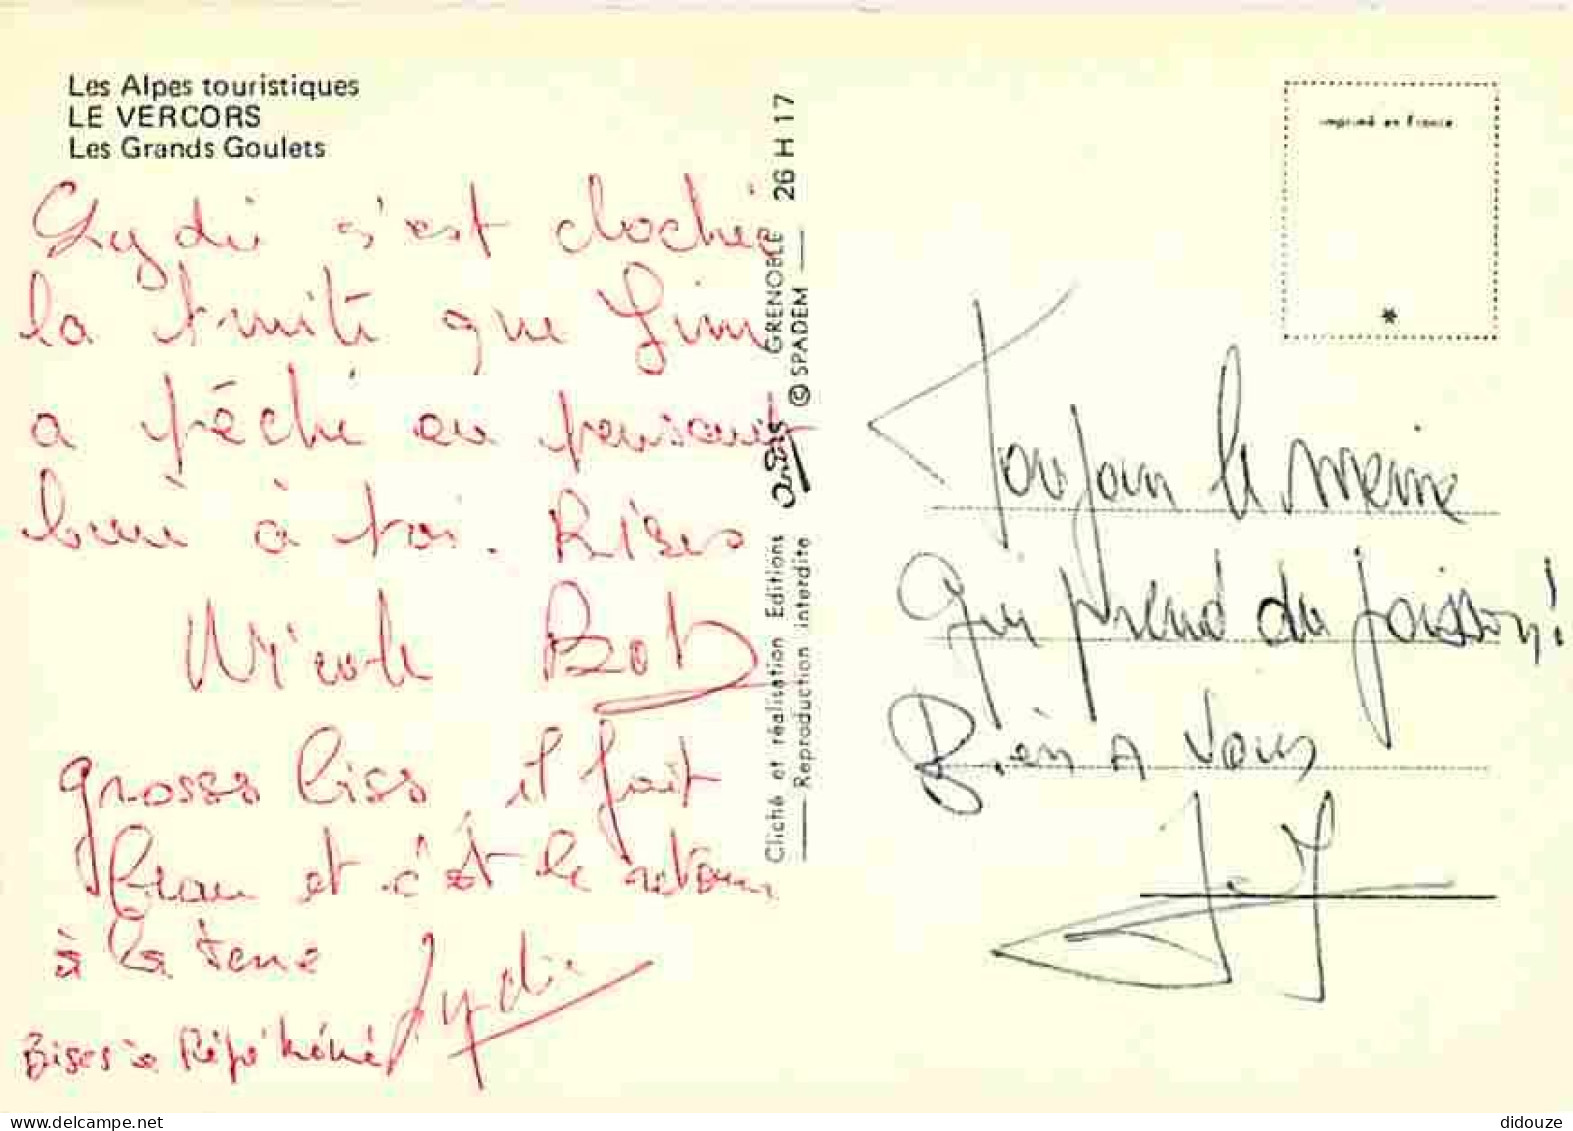 Les Alpes touristiques
LE VERCORS
Les Grands Goulets
Lydie s'est clochée
la truite que Jim
a pêché en pensant
bien à toi. Bises
Nicole Bob
grosses bises, il fait
beau et c'est le retour
à la terre
Lydie
Bises à Pépé Mémé
Cliché et réalisation Editions andis GRENOBLE 26 H 17
Reproduction interdite © SPADEM
imprimé en France
*
Toujours le meme
Qui prend du poisson!
Bien A Vous